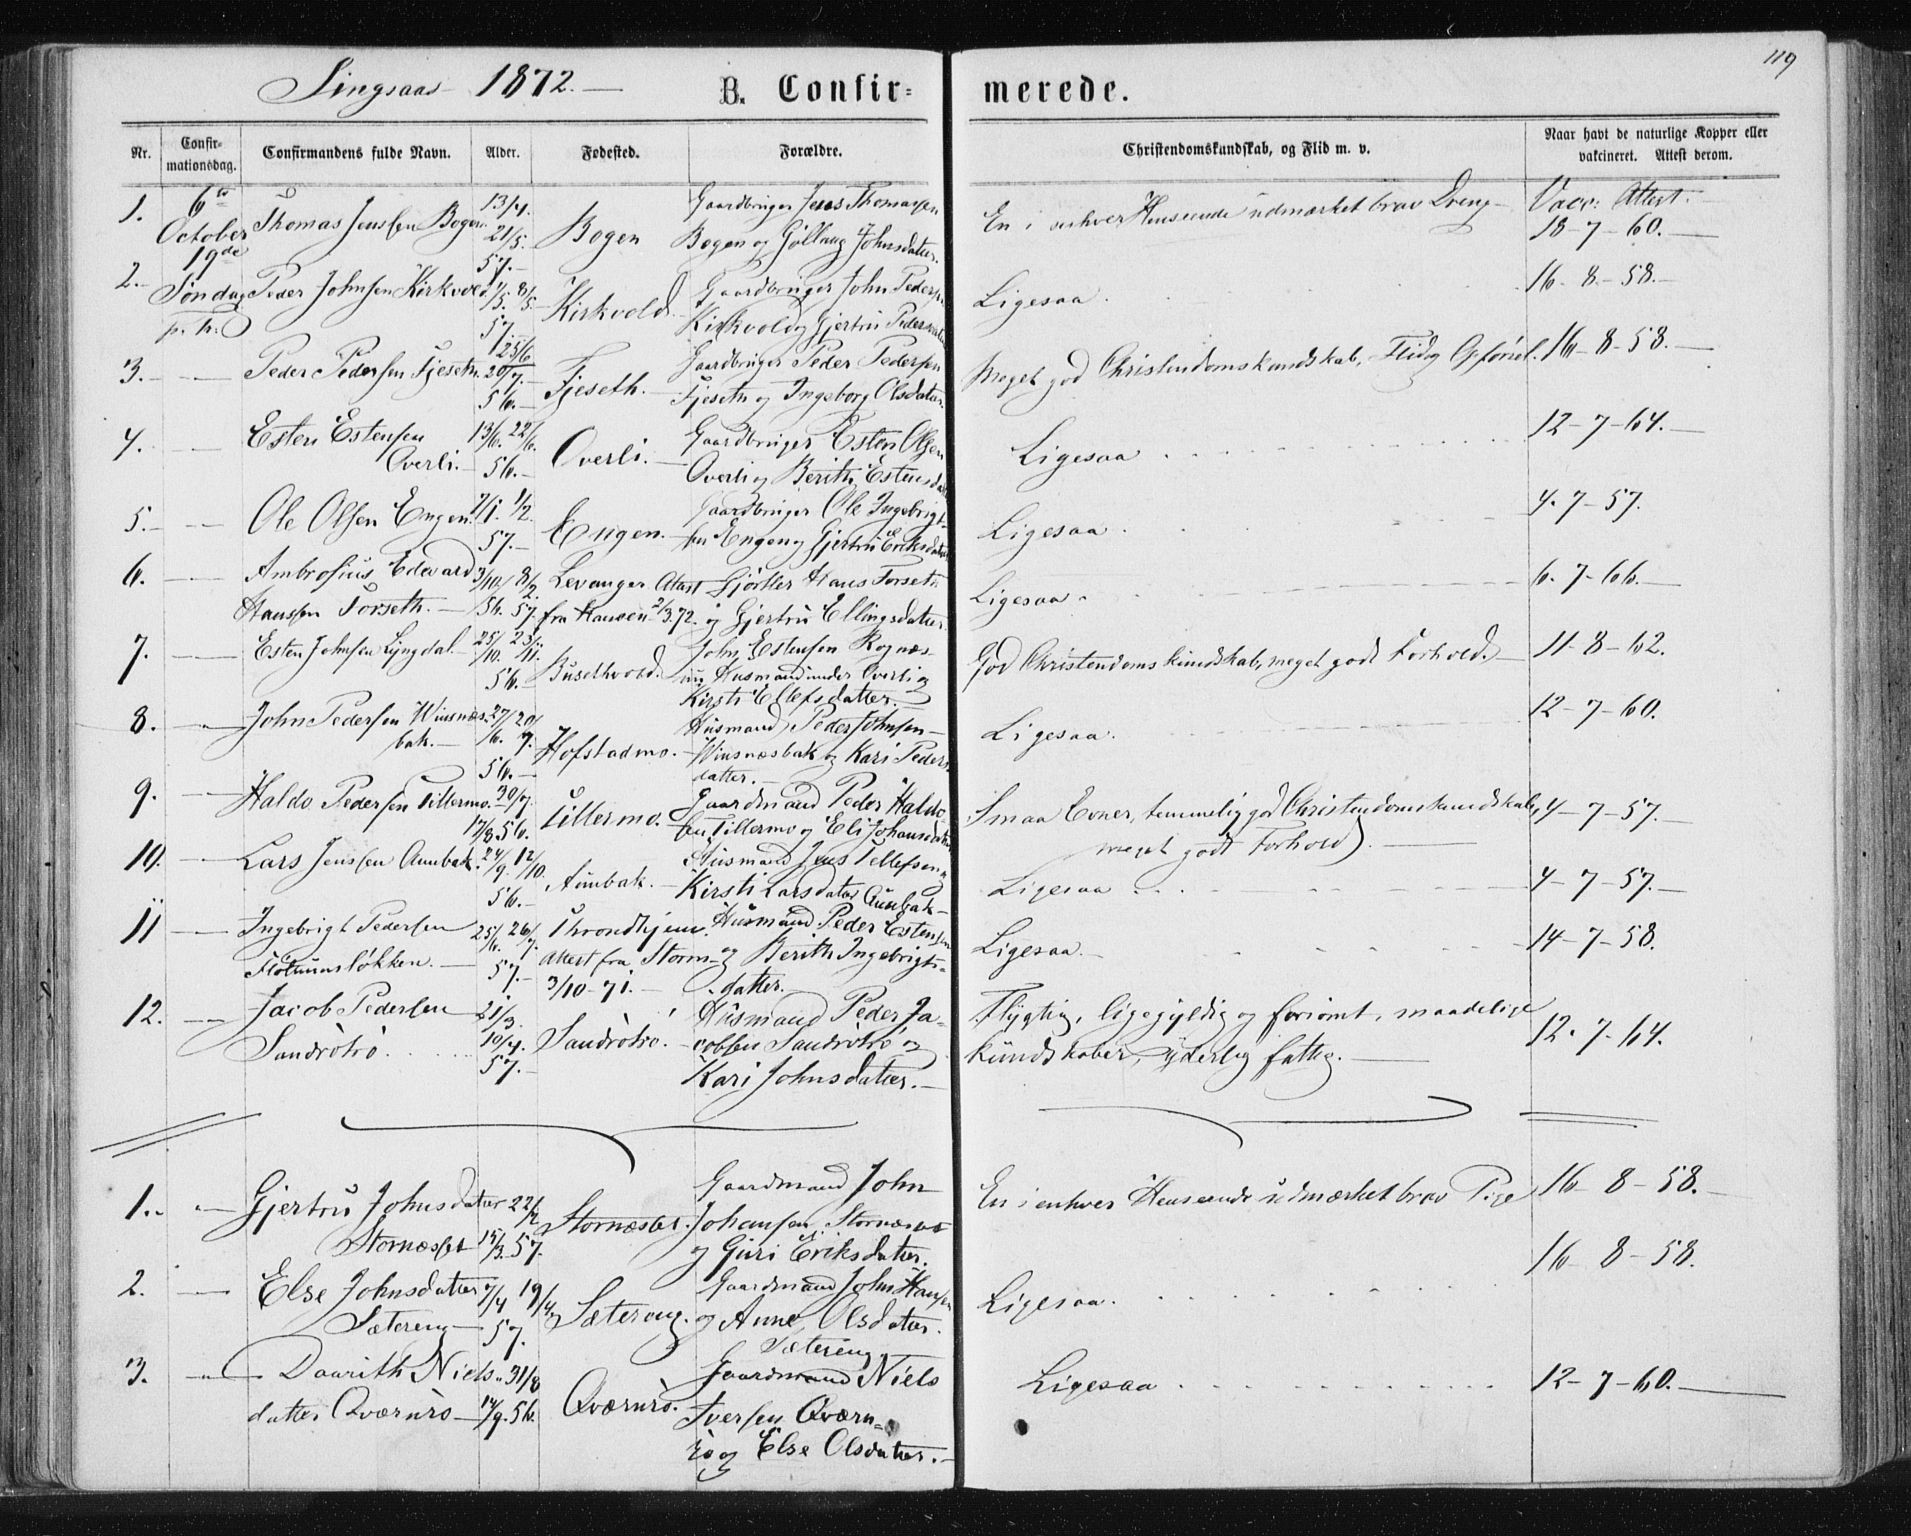 119
Singsaas 1872.
B. Confir= merede.
Nr. Confirmationsdag. Confirmandens fulde Navn. Alder. Fødested. Forældre. Christendomskundskab, og Flid m. v. Naar havt de naturlige Kopper eller vakcineret. Attest derom.
1. 6te October Thomas Jenssen Bogen 13/4. 21/5. 57. Bogen Gaardbruger Jens Thomasen
Bogen og Gollaug Johnsdatter.
En i enhver Henseende udmærket brav Dreng Vacc: Attest:
18-7-60.
2. 19de Søndag p. Tr. Peder Johnsen Kirkvold 8/5. 57. Kirkvold. Gaardbruger John Pedersen
Kirkvold og Gjertru Pedersdatter
Ligesaa 16-8-58.
3. Peder Pedersen Fjeseth. 25/6 20/7. 56. Fjeseth. Gaardbruger Peder Pedersen
Fjeseth og Ingeborg Olsdatter.
Meget god Christendomskundskab, Flid og Opførsel. 16-8-58.
4. Esten Estensen
Overli. 13/6. 22/6. 56. Overli. Gaardbruger Esten Olsen
Overli og Berith Estensdatter
Ligesaa 12-7-64.
5. Ole Olsen Engen. 7/1. 1/2. 57. Engen. Gaardbruger Ole Ingebrigt-
sen Engen og Gjertru Eriksdatter
Ligesaa 4-7-57.
6. Ambrosius Edevard
Hanssen Forseth. 3/10. 56. 8/2. 57. Levanger Attest
fra Hansen 2/3.72. Gjørtler Hans Forseth
og Gjertru Ellingsdatter.
Ligesaa 6-7-66.
7. Esten Johnsen Lyngdal 25/10. 23/11. 56. Busethvold. John Estensen Rognæs
nu Husmand under Overli og
Kirsti Ellefsdatter.
God Christendomskundskab, meget godt Forhold. 11-8-62.
8. John Pedersen Winsnæs-
bak. 27/6. 20/7. 56. Hofstadmo. Husmand Peder Johnsen
Winsnæsbak og Kari Peders-
datter.
Ligesaa. 12-7-60.
9. Haldo Pedersen Tillermo. 30/7. 17/8 56. Tillermo. Gaardmand Peder Haldo-
sen Tillermo og Eli Johansdatter
Smaa Evner, temmelig god Christendomskundskab,
meget godt Forhold. 4-7-57.
10. Lars Jenssen Aunbak. 24/9. 12/10. 56. Aunbak. Husmand Jens Tellefsen og
Kirsti Larsdatter Aunbak
Ligesaa 4-7-57.
11 Ingebrigt Pedersen
25/6. 26/7. 57. Throndhjem.
Attest fra Storm
3/10-71. Husmand Peder Estensen
og Berith Ingebrigts-
datter.
Ligesaa. 14-7-58.
12. Jacob Pedersen
Sandrötrö 21/3. 10/4. 57. Sandrötrö. Husmand Peder Ja-
cobsen Sandrötrö og
Kari Johnsdatter.
Flygtig, ligegyldig og forsømt, maadelige
kundskaber, yderlig fattig. 12-7-64.
1. Gjertru Johnsdatter
Stornæsset 22/2 15/3. 57. Stornæsset. Gaardmand John
Johansen Stornæsset
og Guri Eriksdatter.
En i enhver Henseende udmærket brav Pige 16-8-58.
16-8-58.
2. Else Johnsdatter
Sætereng 7/4 19/4 57. Sætereng. Gaardmand John Hansen
og Anne Olsdatter
Sætereng
Ligesaa.
3. Daarith Niels-
datter Qværnrö 31/8 14/9. 56. Qværnrö. Gaardmand Niels
Iversen Qværn-
rö og Else Olsdatter.
Ligesaa 12-7-60.